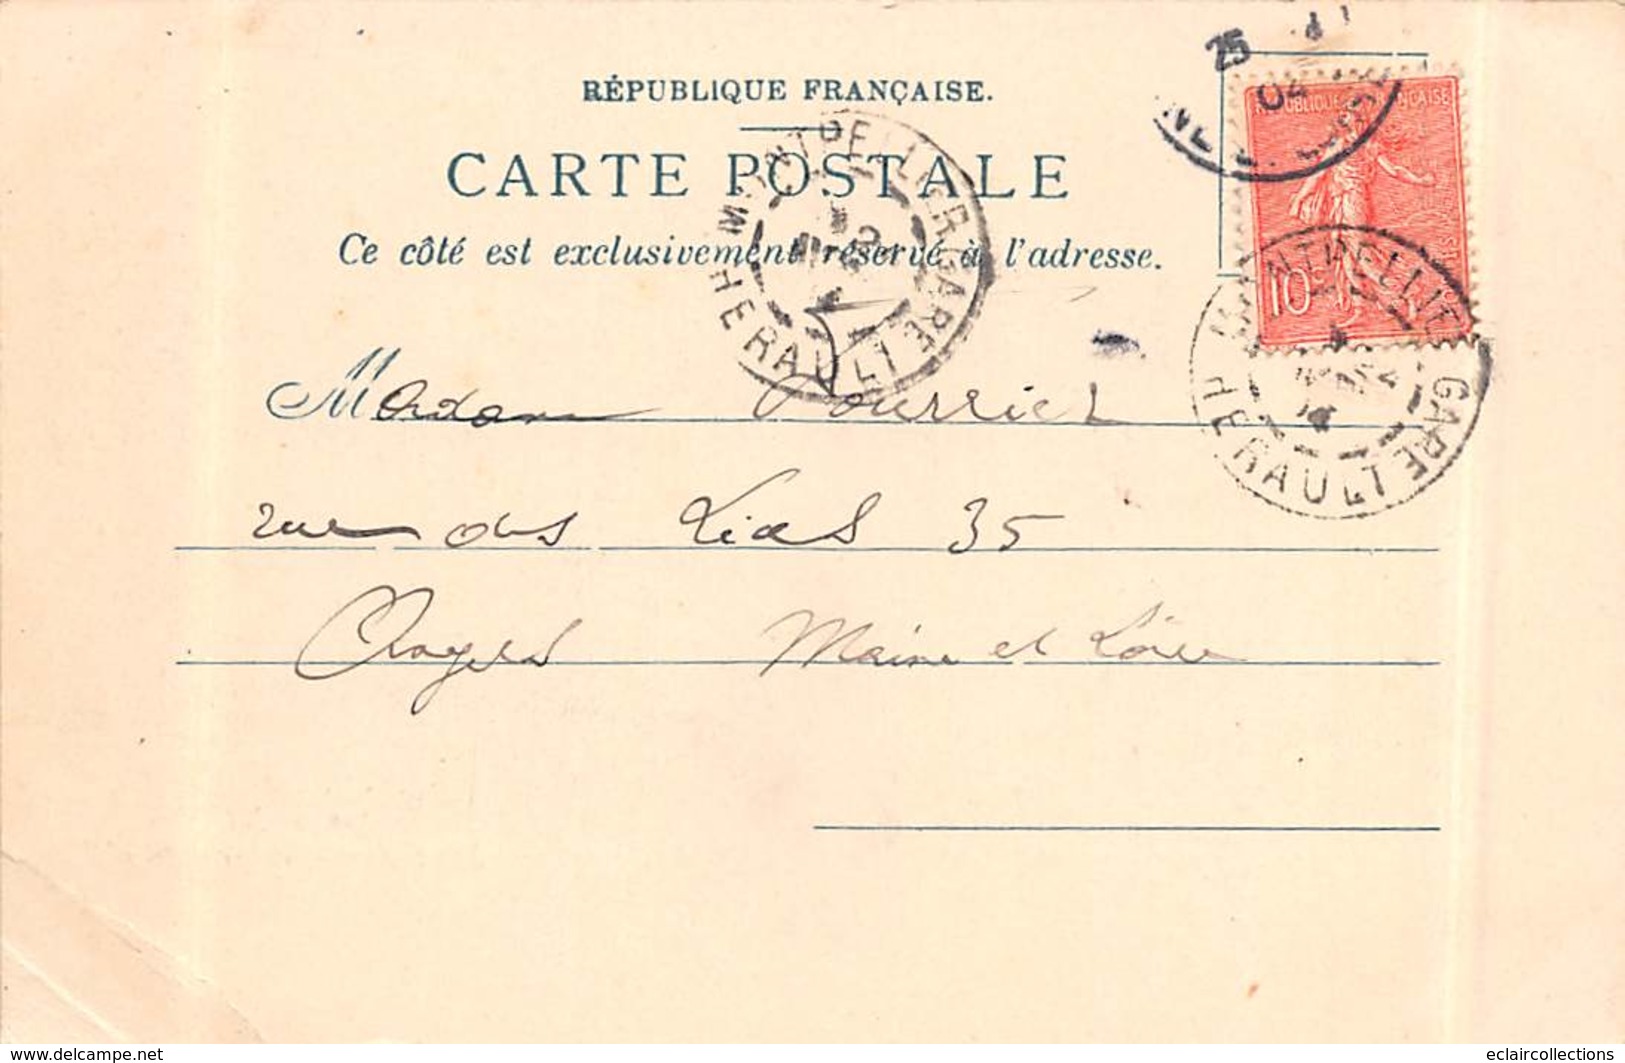 25
04
RÉPUBLIQUE FRANÇAISE.
CARTE POSTALE
Ce côté est exclusivement réservé à l'adresse.
REPUBLIQUE FRANÇAISE
10
MONTPELLIER GARE
HERAULT
MONTPELLIER GARE
HERAULT
Madame
rue des Lias 35
Angers Maine et Loire
www.delcampe.net
eclaircollections